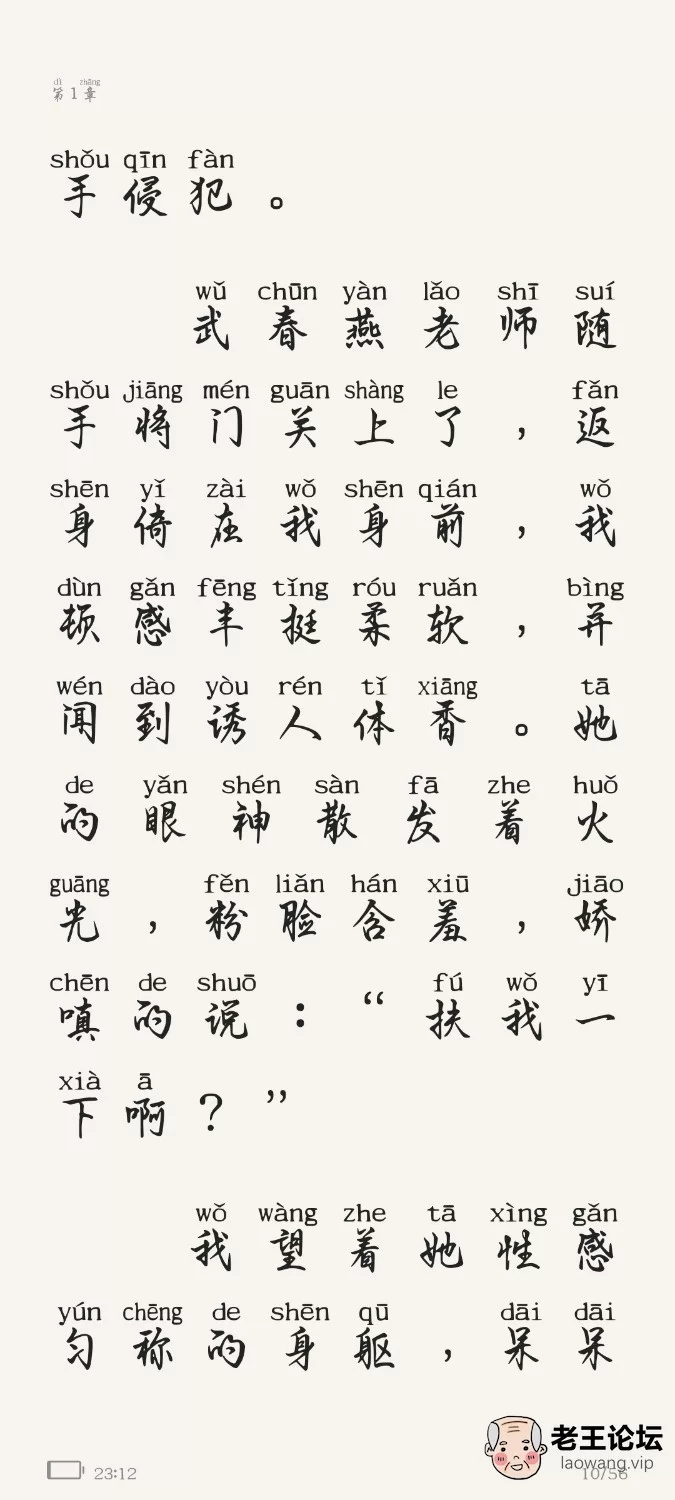 dì zhāng
第 1 章
shǒu qīn fàn
手 侵 犯 。
wǔ chūn yàn lǎo shī suí
武 春 燕 老 师 随
shǒu jiāng mén guān shàng le fǎn
手 将 门 关 上 了 ， 返
shēn yǐ zài wǒ shēn qián wǒ
身 倚 在 我 身 前 ， 我
dùn gǎn fēng tǐng róu ruǎn bìng
顿 感 丰 挺 柔 软 ， 并
wén dào yòu rén tǐ xiāng tā
闻 到 诱 人 体 香 。 她
de yǎn shén sàn fā zhe huǒ
的 眼 神 散 发 着 火
guāng fěn liǎn hán xiū jiāo
光 ， 粉 脸 含 羞 ， 娇
chēn de shuō fú wǒ yī
嗔 的 说 ： “ 扶 我 一
xià ā
下 啊 ？ ”
wǒ wàng zhe tā xìng gǎn
我 望 着 她 性 感
yún chēng de shēn qū dāi dāi
匀 称 的 身 躯 ， 呆 呆
老王论坛
laowang.vip
23:12
10/56